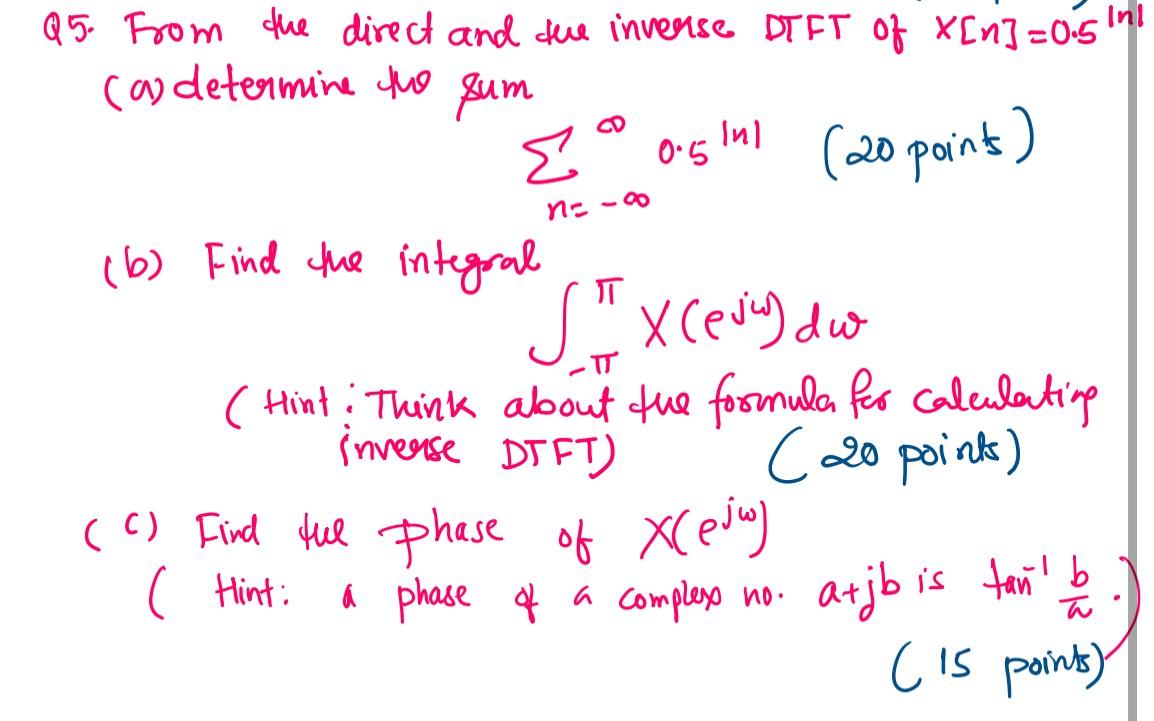 Q5. From the direct and the inverse DTFT of x[n]=0.5^|n|
(a) determine the sum
∑_{n=-∞}^{∞} 0.5^|n| (20 points)
(b) Find the integral
∫_{-π}^{π} X(e^{jω}) dω
(Hint: Think about the formula for calculating
inverse DTFT) (20 points)
(c) Find the phase of X(e^{jω})
(Hint: a phase of a complex no. a+jb is tan^{-1} b/a.)
(15 points)